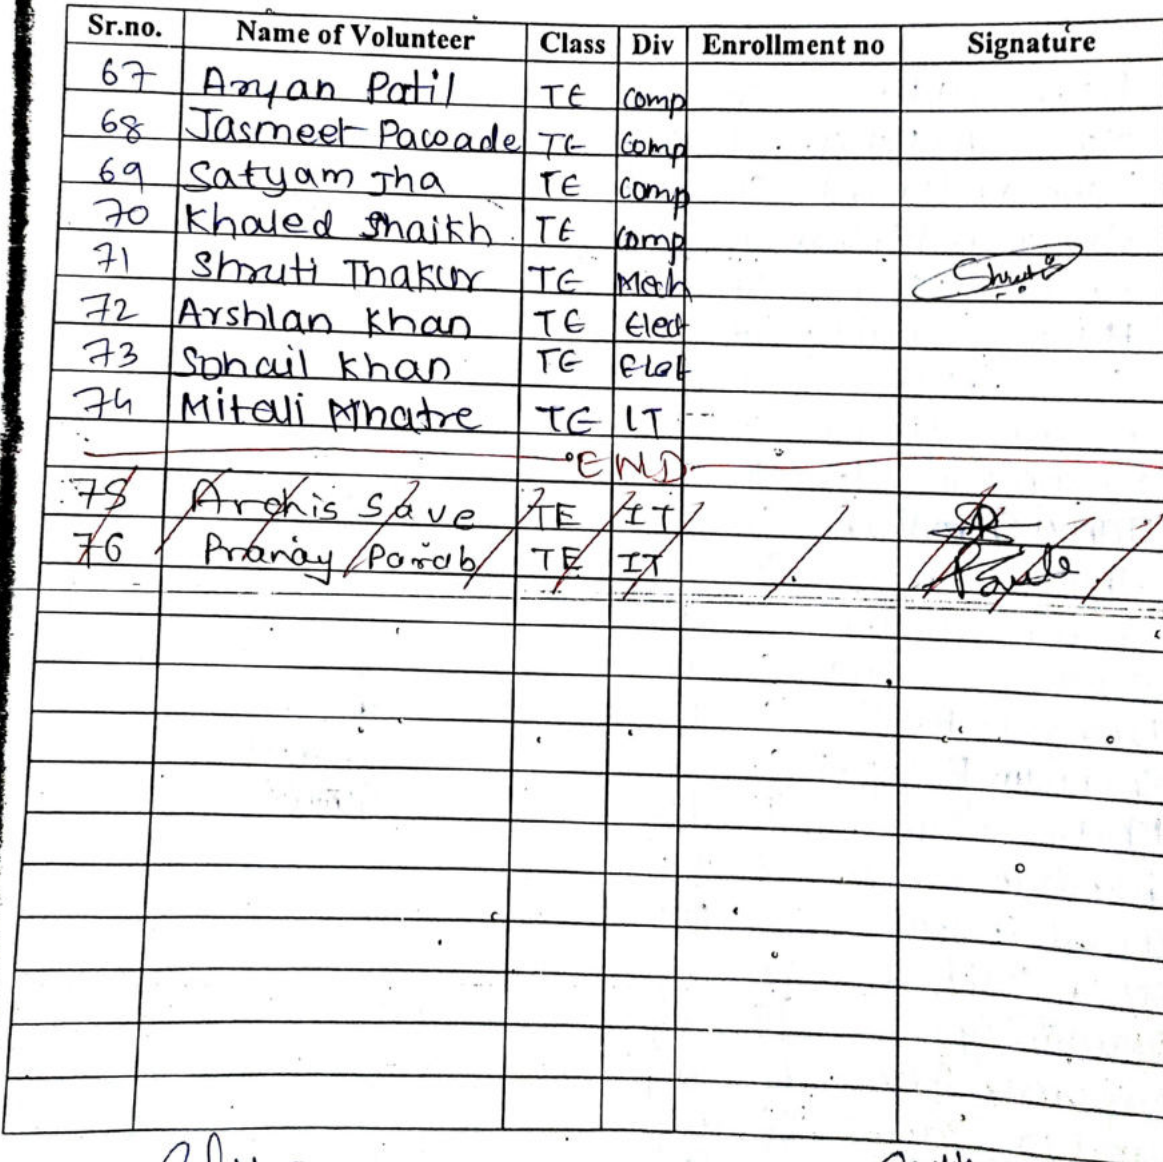 Sr.no. Name of Volunteer Class Div Enrollment no Signature
67 Aryan Patil TE Comp
68 Jasmeet Pawade TE Comp
69 Satyam Jha TE Comp
70 Khaled Shaikh TE Comp
71 Shruti Thakur TE Mech Shruti
72 Arshlan Khan TE Elect
73 Sohail Khan TE Elet
74 Mitali Mhatre TE IT
END
75 Archis Save TE IT
76 Pranay Parab TE IT